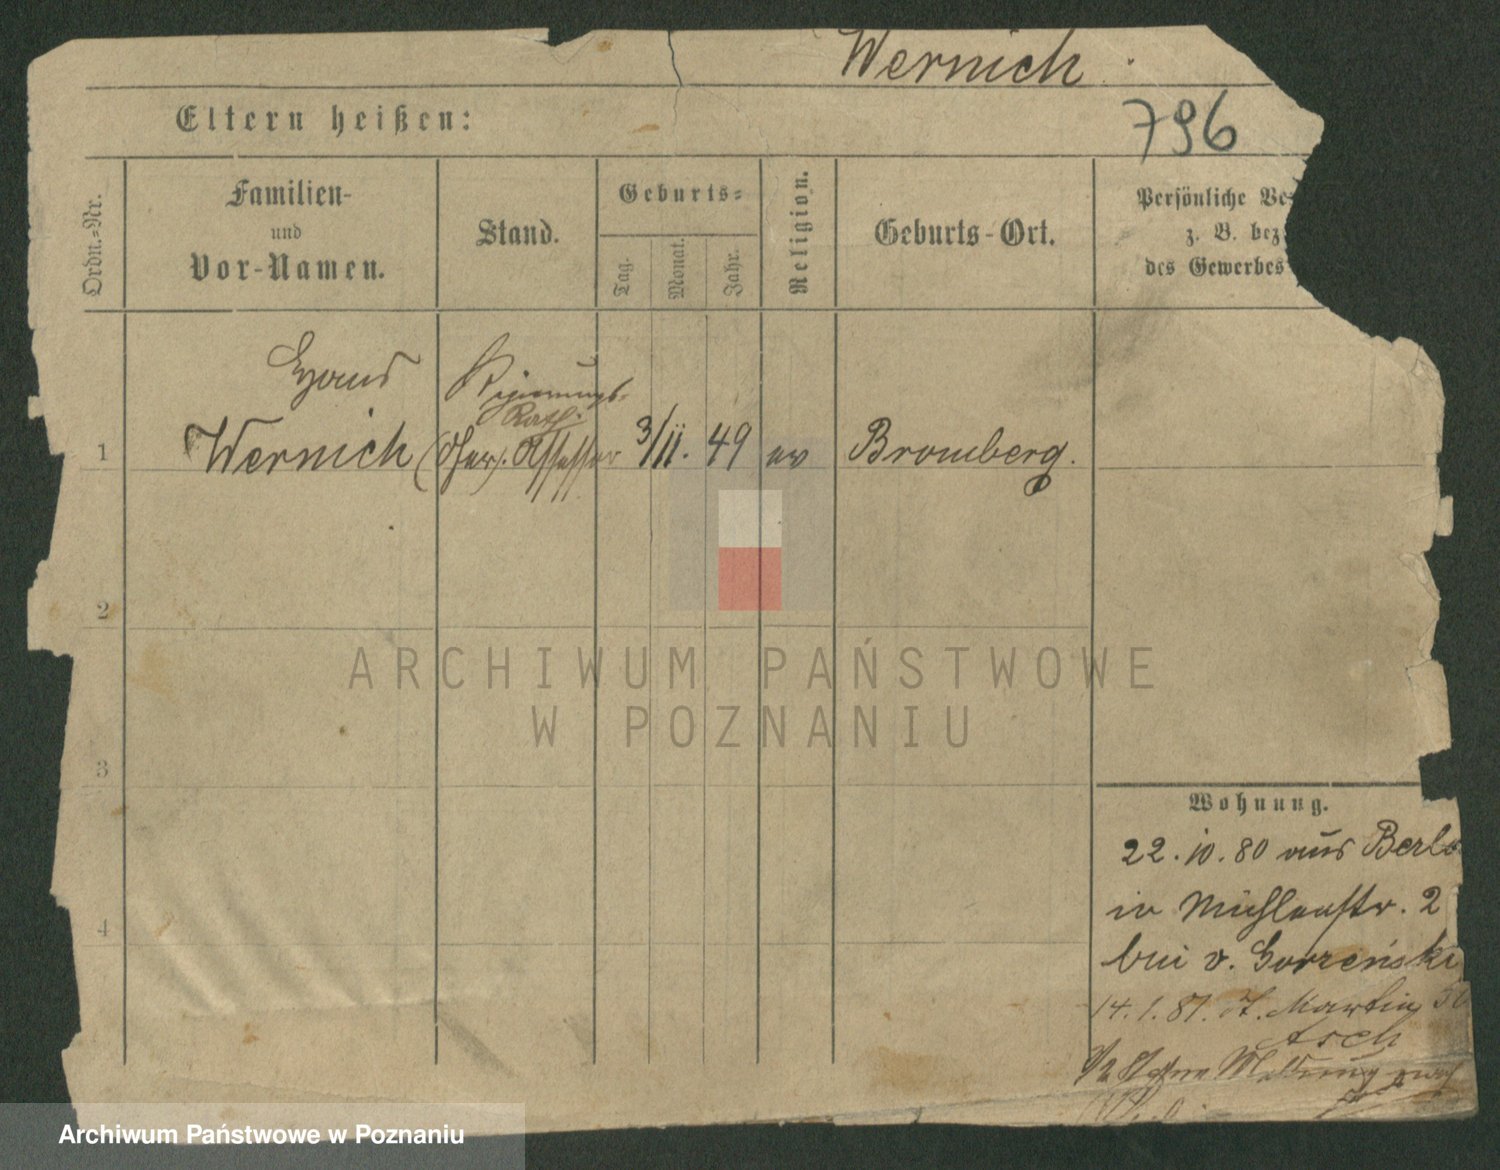 Wernich.
Eltern heißen:
796
Ordn.-Nr.
Familien-
und
Vor-Namen.
Stand.
Geburts-
Tag.
Monat.
Jahr.
Religion.
Geburts-Ort.
Persönliche Ve
z. B. bez
des Gewerbes
Hans
Regierungs-
Rath.
1 Wernich Assessor 3/11. 49 ev Bromberg.
2
3
4
Wohnung.
22. 10. 80 aus Berl
in Mühlenstr. 2
bei v. Gorzeński
14. 1. 81. St. Martin 50
Asch
ARCHIWUM PAŃSTWOWE
W POZNANIU
Archiwum Państwowe w Poznaniu